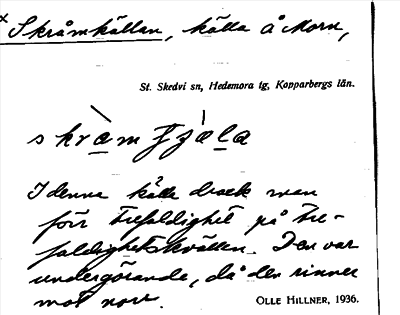 x Skråmkällan, källa å Morn,
St. Skedvi sn, Hedemora tg, Kopparbergs län.
I denna källa drack man
förr trefaldighet på tre-
faldighetskvällen. Den var
undergörande, då den rinner
mot norr.
OLLE HILLNER, 1936.